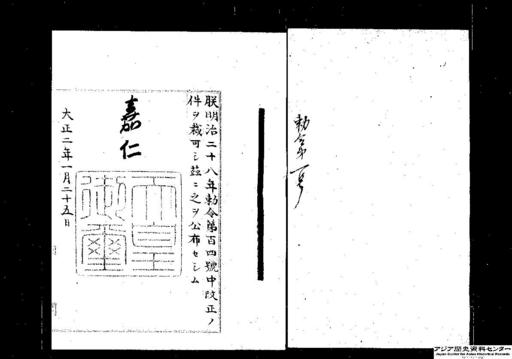 勅令第一号
朕明治二十八年勅令第百四號中改正ノ
件ヲ裁可シ茲ニ之ヲ公布セシム
嘉仁
天皇御璽
大正二年一月二十五日
アジア歴史資料センター
Japan Center for Asian Historical Records